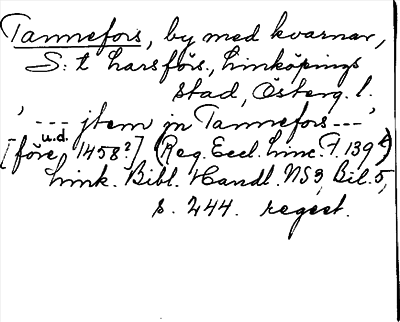 Tannefors, by med kvarnar,
S:t Larsförs., Linköpings
stad, Österg. l.
' --- jtem in Tannefors --- '
u.d.
[före 1458?] (Reg. Eccl. Linc. F. 139 r)
Link. Bibl. Handl. NS 3, Bil. 5,
s. 244. regest.